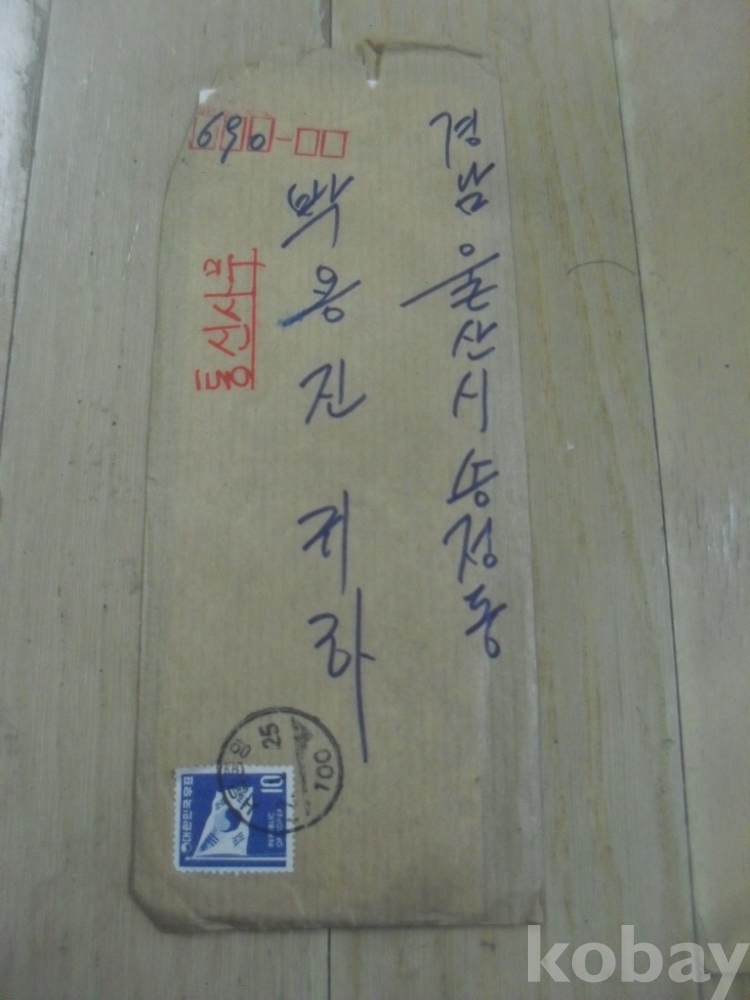 경남 울산시 송정동
박용진 귀하
690-
통신사무
대한민국우표
10
REPUBLIC
OF KOREA
25
100
kobay